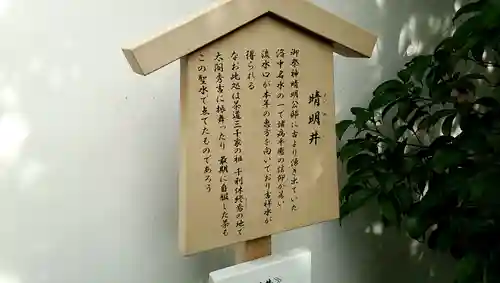 晴明井
御祭神晴明公邸に古より湧き出ていた
洛中名水の一で諸病平癒の信仰が高い
流水口が本年の恵方を向いており吉祥水が
得られる
なお此処は茶道三千家の祖 千利休終焉の地で
太閤秀吉に振舞ったり 最期に自服した茶も
この聖水で点てたものであろう